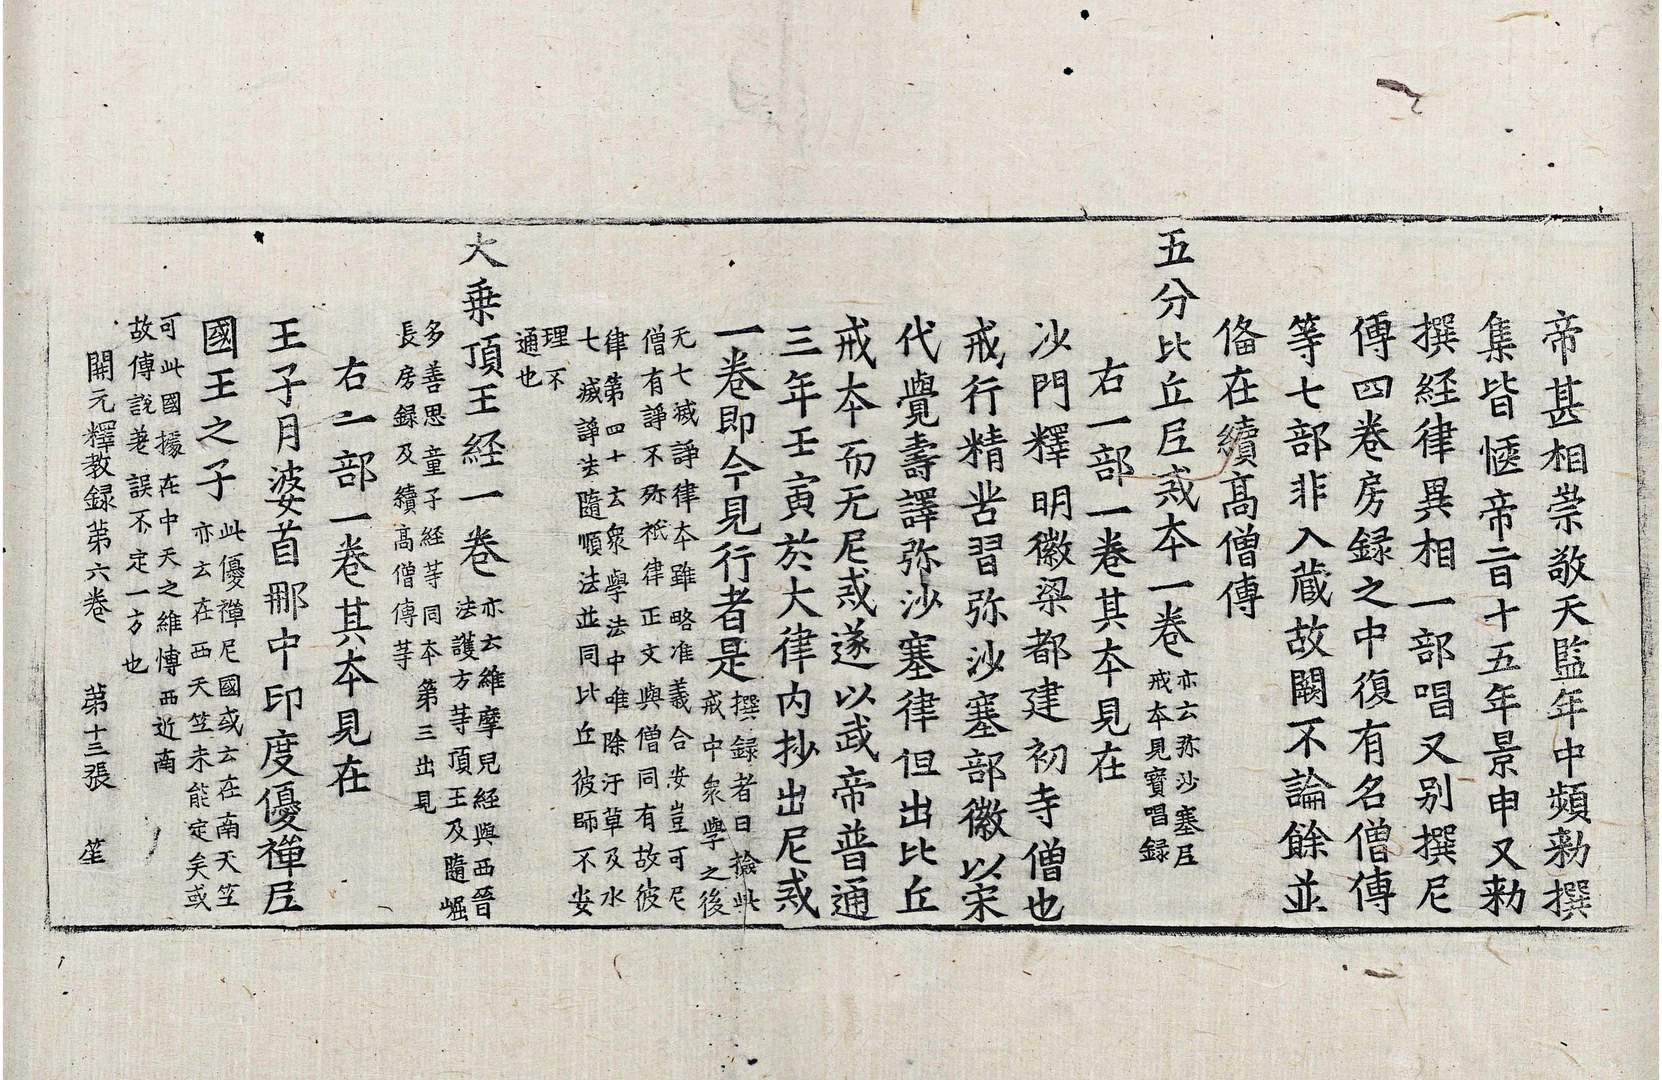 帝甚相崇敬天監年中頻勑撰
集皆愜帝旨十五年景申又勑
撰経律異相一部唱又别撰尼
傳四卷房録之中復有名僧傳
等七部非入蔵故闕不論餘並
俻在續髙僧傳
五分比丘尼戒本一卷亦云弥沙塞尼
戒本見寳唱録
右一部一卷其本見在
沙門釋明徽梁都建初寺僧也
戒行精苦習弥沙塞部徽以宋
代覺壽譯弥沙塞律但出比丘
戒本而无尼戒遂以武帝普通
三年壬寅於大律内抄出尼戒
一卷即今見行者是撰録者曰撿此
戒中衆學之後
无七滅諍律本雖略准義合安豈可尼
僧有諍不殄衹律正文與僧同有故彼
律第四十云衆學法中唯除汙草及水
七滅諍法隨順法並同比丘彼師不安
理不
通也
大乗頂王経一卷亦云維摩兒経與西晉
法護方等頂王及隨崛
多善思童子経等同本第三出見
長房録及續髙僧傳等
右一部一卷其本見在
王子月婆首那中印度優禪尼
國王之子此優禪尼國或云在南天竺
亦云在西天竺未能定矣或
可此國據在中天之維愽西近南
故傳說差誤不定一方也
開元釋教録第六卷 第十三張 笙